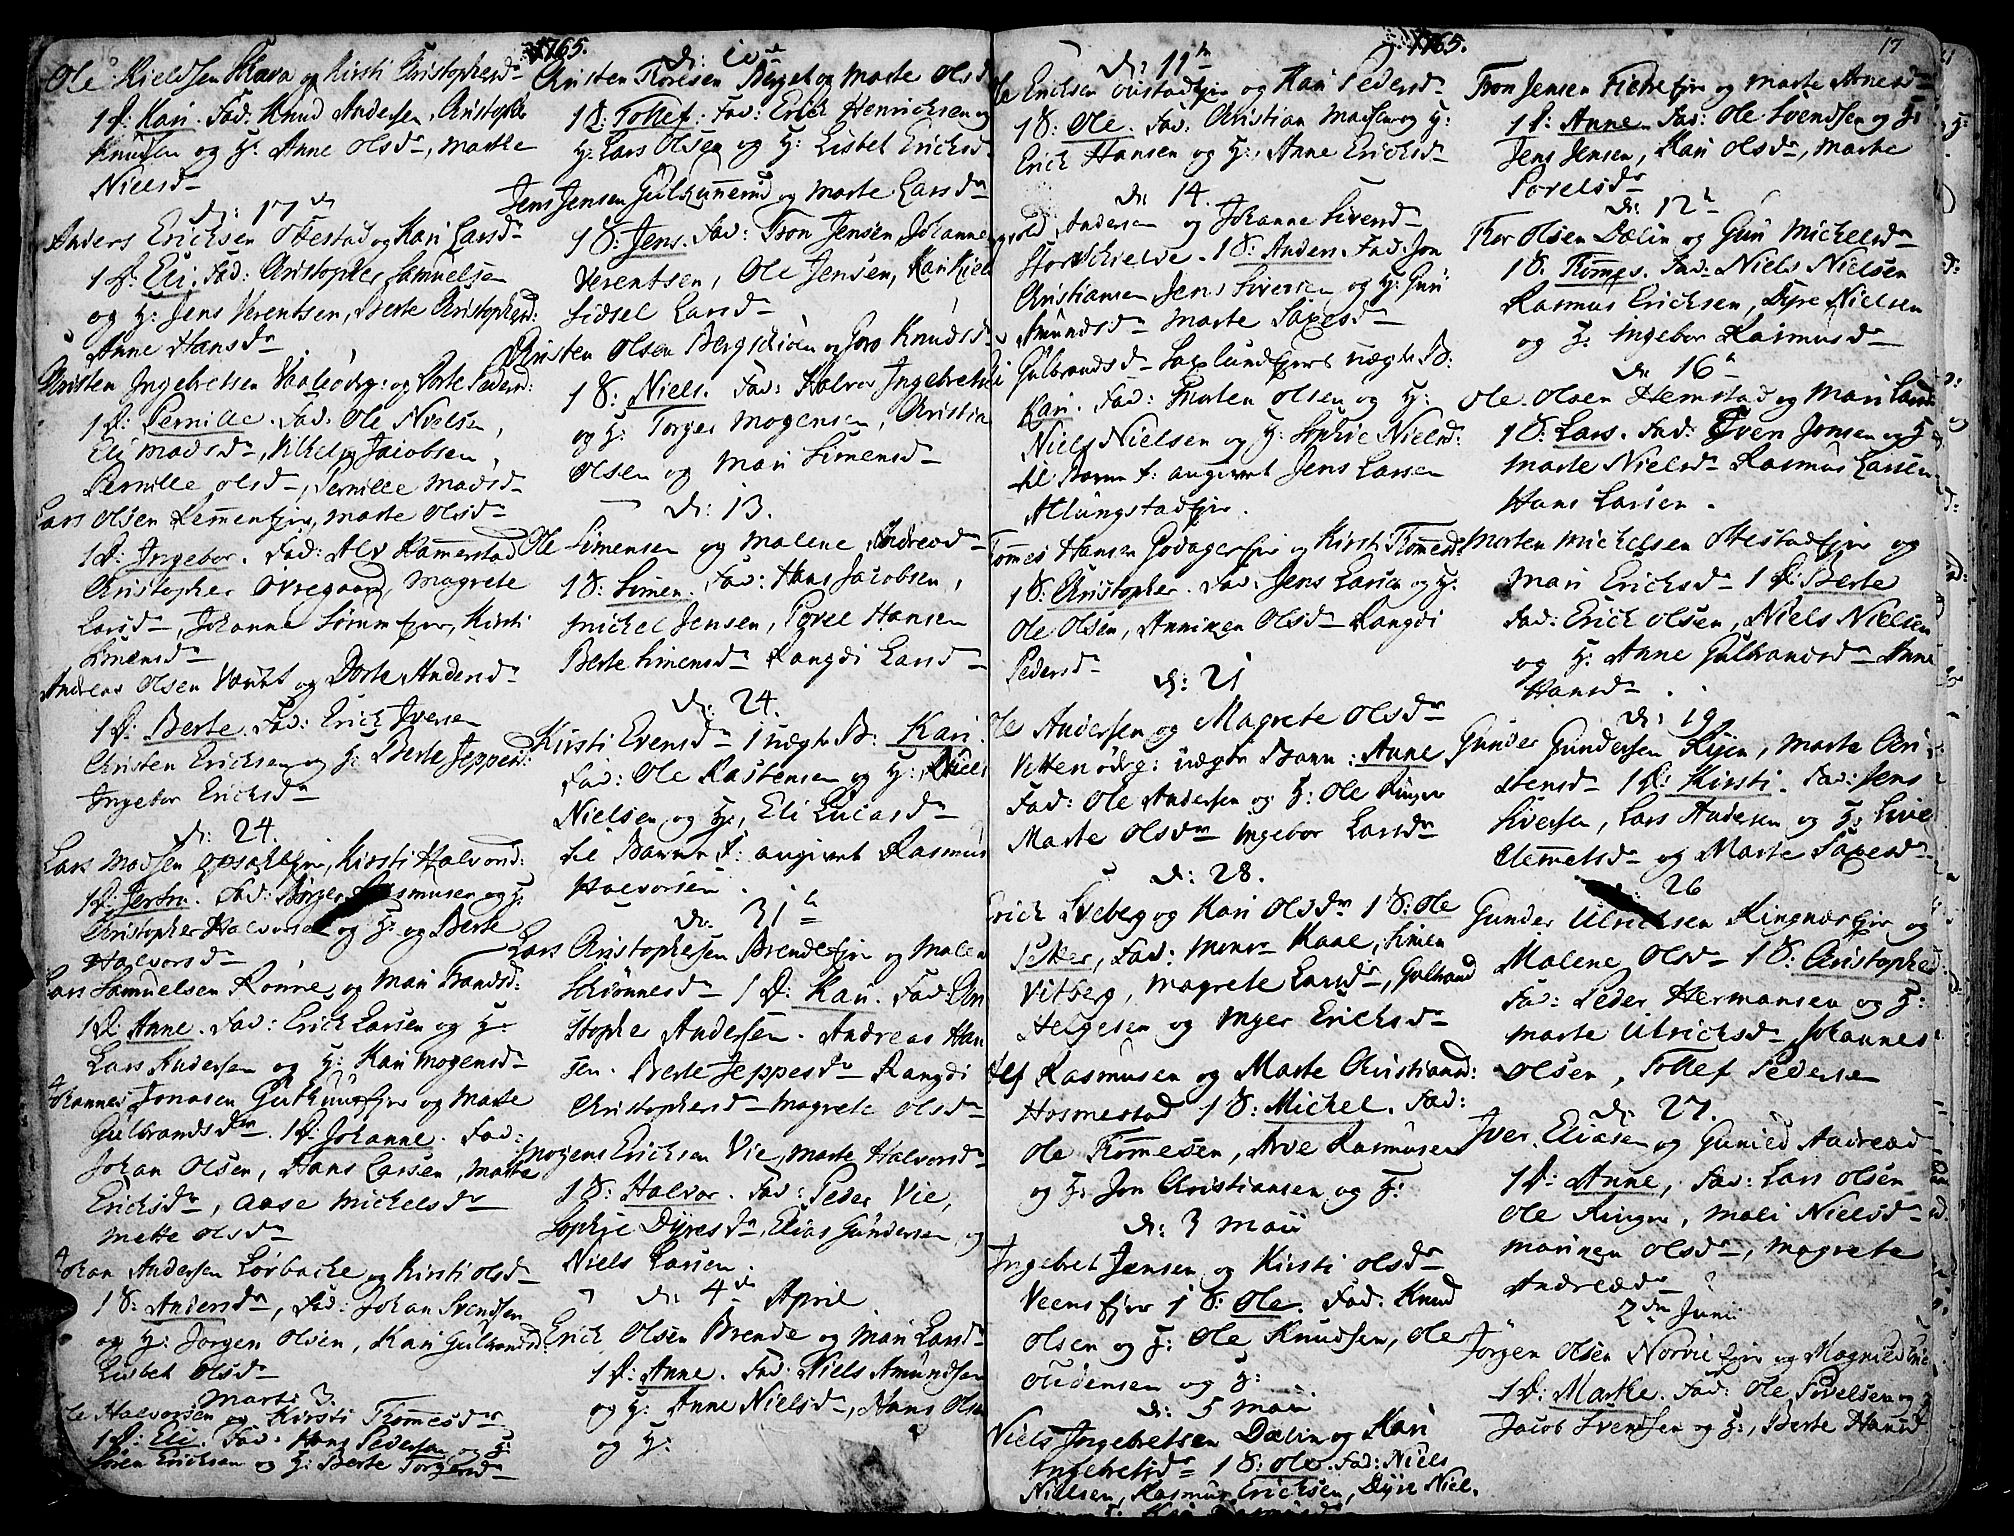 1765.
Ole Kieldsen Skava og Kirsti Christophersdr
1 D: Kari. Fad: Knud Andersen, Christopher
Knudsen og H: Anne Olsdr, Marthe
Nielsdr
D: 17de
Anders Ericksen Ofestad og Kari Larsdr
1 D: Eli. Fad: Christopher Samuelsen
og H: Jens Verentsen, Berte Christophersd:
Anne Hansdr
Christen Ingebretsen og Dorte Pedersd:
1 D: Pernille. Fad: Ole Nielsen,
Eli Madsdr, Vilhelm Jacobsen,
Pernille Olsdr, Pernille Madsdr
Lars Olsen Remmen ejer, Marte Olsdr
1 D: Ingebor. Fad: Alv Kammerstad
Christopher Ovregaard, Magrete
Larsdr, Johanne ejer, Kirsti
Simensdr
Andreas Olsen og Dorte Andersdr
1 D: Berte. Fad: Erick Iversen
Christen Ericksen og H: Berte Jeppesd:
Ingebor Ericksdr
D: 24.
Lars Madsen Opsahl ejer, Kirsti Halvorsd:
1 D: Jertru. Fad: Børger Rasmusen og H:
Christopher Halvorsen og H: og Berte
Halvorsdr
Lars Samuelsen Rønne og Mari Trondsd:
1 D: Anne. Fad: Erick Larsen og H:
Lars Andersen og H: Kari Mogensdr
Johannes Jonasen ejer og Marte
Gulbrandsdr. 1 D: Johanne. Fad:
Johan Olsen, Hans Larsen, Marte
Ericksdr, Aase Michelsdr
Mette Olsdr
Johan Andersen Lørbache og Kirsti Olsdr
1 S: Andersdr, Fad: Johan Svendsen
og H: Jørgen Olsen, Kari Gulbrandsd:
Lisbet Olsdr
Marti 3.
Ole Halvorsen og Kirsti Tommesdr
1 D: Eli. Fad: Hans Pedersen og H:
Søren Ericksen og H: Berte Torgersdr
D: 10de
Christen Toresen Berget og Marte Olsd
1 S: Tollef. Fad: Erick Henricksen og
H: Lars Olsen og H: Lisbet Ericksd.
Jens Jensen Gulhunnerud og Marte Larsdr
1 S: Jens. Fad: Tron Jensen Johanne
Verentsen, Ole Jensen, Kari Niels
Sidsel Larsdr
Christen Olsen Bergschiøen og Goro Knudsdr
1 S: Niels. Fad: Halvor Ingebretsen
og H: Torger Mogensen, Christian
Olsen og Mari Simensdr
D: 13.
Ole Simensen og Malene Andreasdr
1 S: Simen. Fad: Hans Jacobsen,
Michel Jensen, Povel Hansen
Berte Simensdr Rangdi Larsdr
D: 24.
Kirsti Evensdr 1 uægte B: Kari.
Fad: Ole Rastensen og H: Niels
Nielsen og H:, Eli Lucasdr
til Barne F: angivet Rasmus
Halvorsen.
D: 31te
Lars Christophersen Brende ejer og Malen
Schiønnesdr 1 D: Kari. Fad: Chri
stopher Andersen. Andreas Han
sen. Berte Jeppesdr Rangdi
Christophersdr Magrete Olsdr
Mogens Ericksen Vie, Marte Halvorsdr
1 S: Halvor. Fad: Peder Vie,
Sophie Dyresdr, Elias Gundersen og
Niels Larsen.
D: 4de April
Erick Olsen Brende og Mari Larsdr
1 D: Anne. Fad: Niels Amundsen
og H: Anne Nielsdr, Hans Olsen
og H:
1765.
17
D: 11te
Ole Ericksen ejer og Kari Pedersdr
1 S: Ole. Fad: Christian Madsen og H:
Erick Hansen og H:, Anne Ericksdr
D: 14.
Andersen og Johanne Siversdr
1 S: Anders. Fad: Jon
Christiansen Jens Siversen og H: Guri
Amundsdr Marte Saxesdr
Gulbrandsdr Saxlund ejer 1 uægte B:
Kari. Fad: Morten Olsen og H:
Niels Nielsen og H: Sophie Nielsd:
til Barne F: angivet Jens Larsen
Atlungstad ejer.
Tommes Hansen Godager ejer og Kirsti Tommesd:
1 S: Christopher. Fad: Jens Larsen og H:
Ole Olsen, Anniken Olsdr Rangdi
Pedersdr
D: 21
Ole Andersen og Magrete Olsdr
uægte Barn: Anne
Fad: Ole Andersen og H: Ole Ringer
Marte Olsdr Ingebor Larsdr
D: 28.
Erick Sveberg og Kari Olsdr 1 S: Ole
Petter, Fad: Monsr Kaae, Simen
Vitberg, Magrete Larsdr, Gulbrand
Helgesen og Inger Ericksdr
Rasmusen og Marte Christiansd:
Hosmestad 1 S: Michel. Fad:
Ole Tommesen, Arve Rasmusen
og H: Jon Christiansen og H:
D: 3 Maii
Ingebret Jensen og Kirsti Olsdr
Veens ejer 1 S: Ole. Fad: Knud
Olsen og H: Ole Knudsen, Ole
Oudensen og H:
D: 5 Maii
Niels Ingebretsen Dælin og Kari
Ingebretsdr 1 S: Ole. Fad: Niels
Nielsen, Rasmus Ericksen, Dyre Niel-
Tron Jensen ejer og Marte Arnesdr
1 D: Anne. Fad: Ole Svendsen og H:
Jens Jensen, Kari Olsdr, Marte
Povelsdr
D: 12te
Thor Olsen Dælin og Guri Michelsdr
1 S: Tommes. Fad: Niels Nielsen
Rasmus Ericksen, Dyre Nielsen
og H: Ingebor Rasmusdr
D: 16te
Ole Olsen Hemstad og Mari Larsd
1 S: Lars. Fad: Even Jonsen og H:
Marte Nielsdr Rasmus Larsen
Hans Larsen.
Morten Michelsen Ofestad ejer og
Mari Ericksdr 1 D: Berte
Fad: Erick Olsen, Niels Nielsen
og H: Anne Gulbrandsdr Anne
Hansdr.
D: 19
Gunder Gundersen, Marte Chri
stensdr 1 D: Kirsti. Fad: Jens
Siversen, Lars Andersen og H: Live
Clemmetsdr og Marte Saxesdr
D: 26
Gunder Ulricksen Ringnæs ejer og
Malene Olsdr 1 S: Christopher
Fad: Peder Hermansen og H:
Marte Ulricksdr, Johannes
Olsen, Tollef Pedersen
D: 27.
Iver Eliasen og Gunild Andreæd
1 D: Anne, Fad: Lars Olsen
Ole Ringer, Mali Nielsdr
Mariken Olsdr, Magrete
Andreædr
2den Juni
Jørgen Olsen Norvie ejer og Magnild
1 D: Marthe. Fad: Ole Povelsen og H
Jacob Svendsen og H:, Berte Hansd